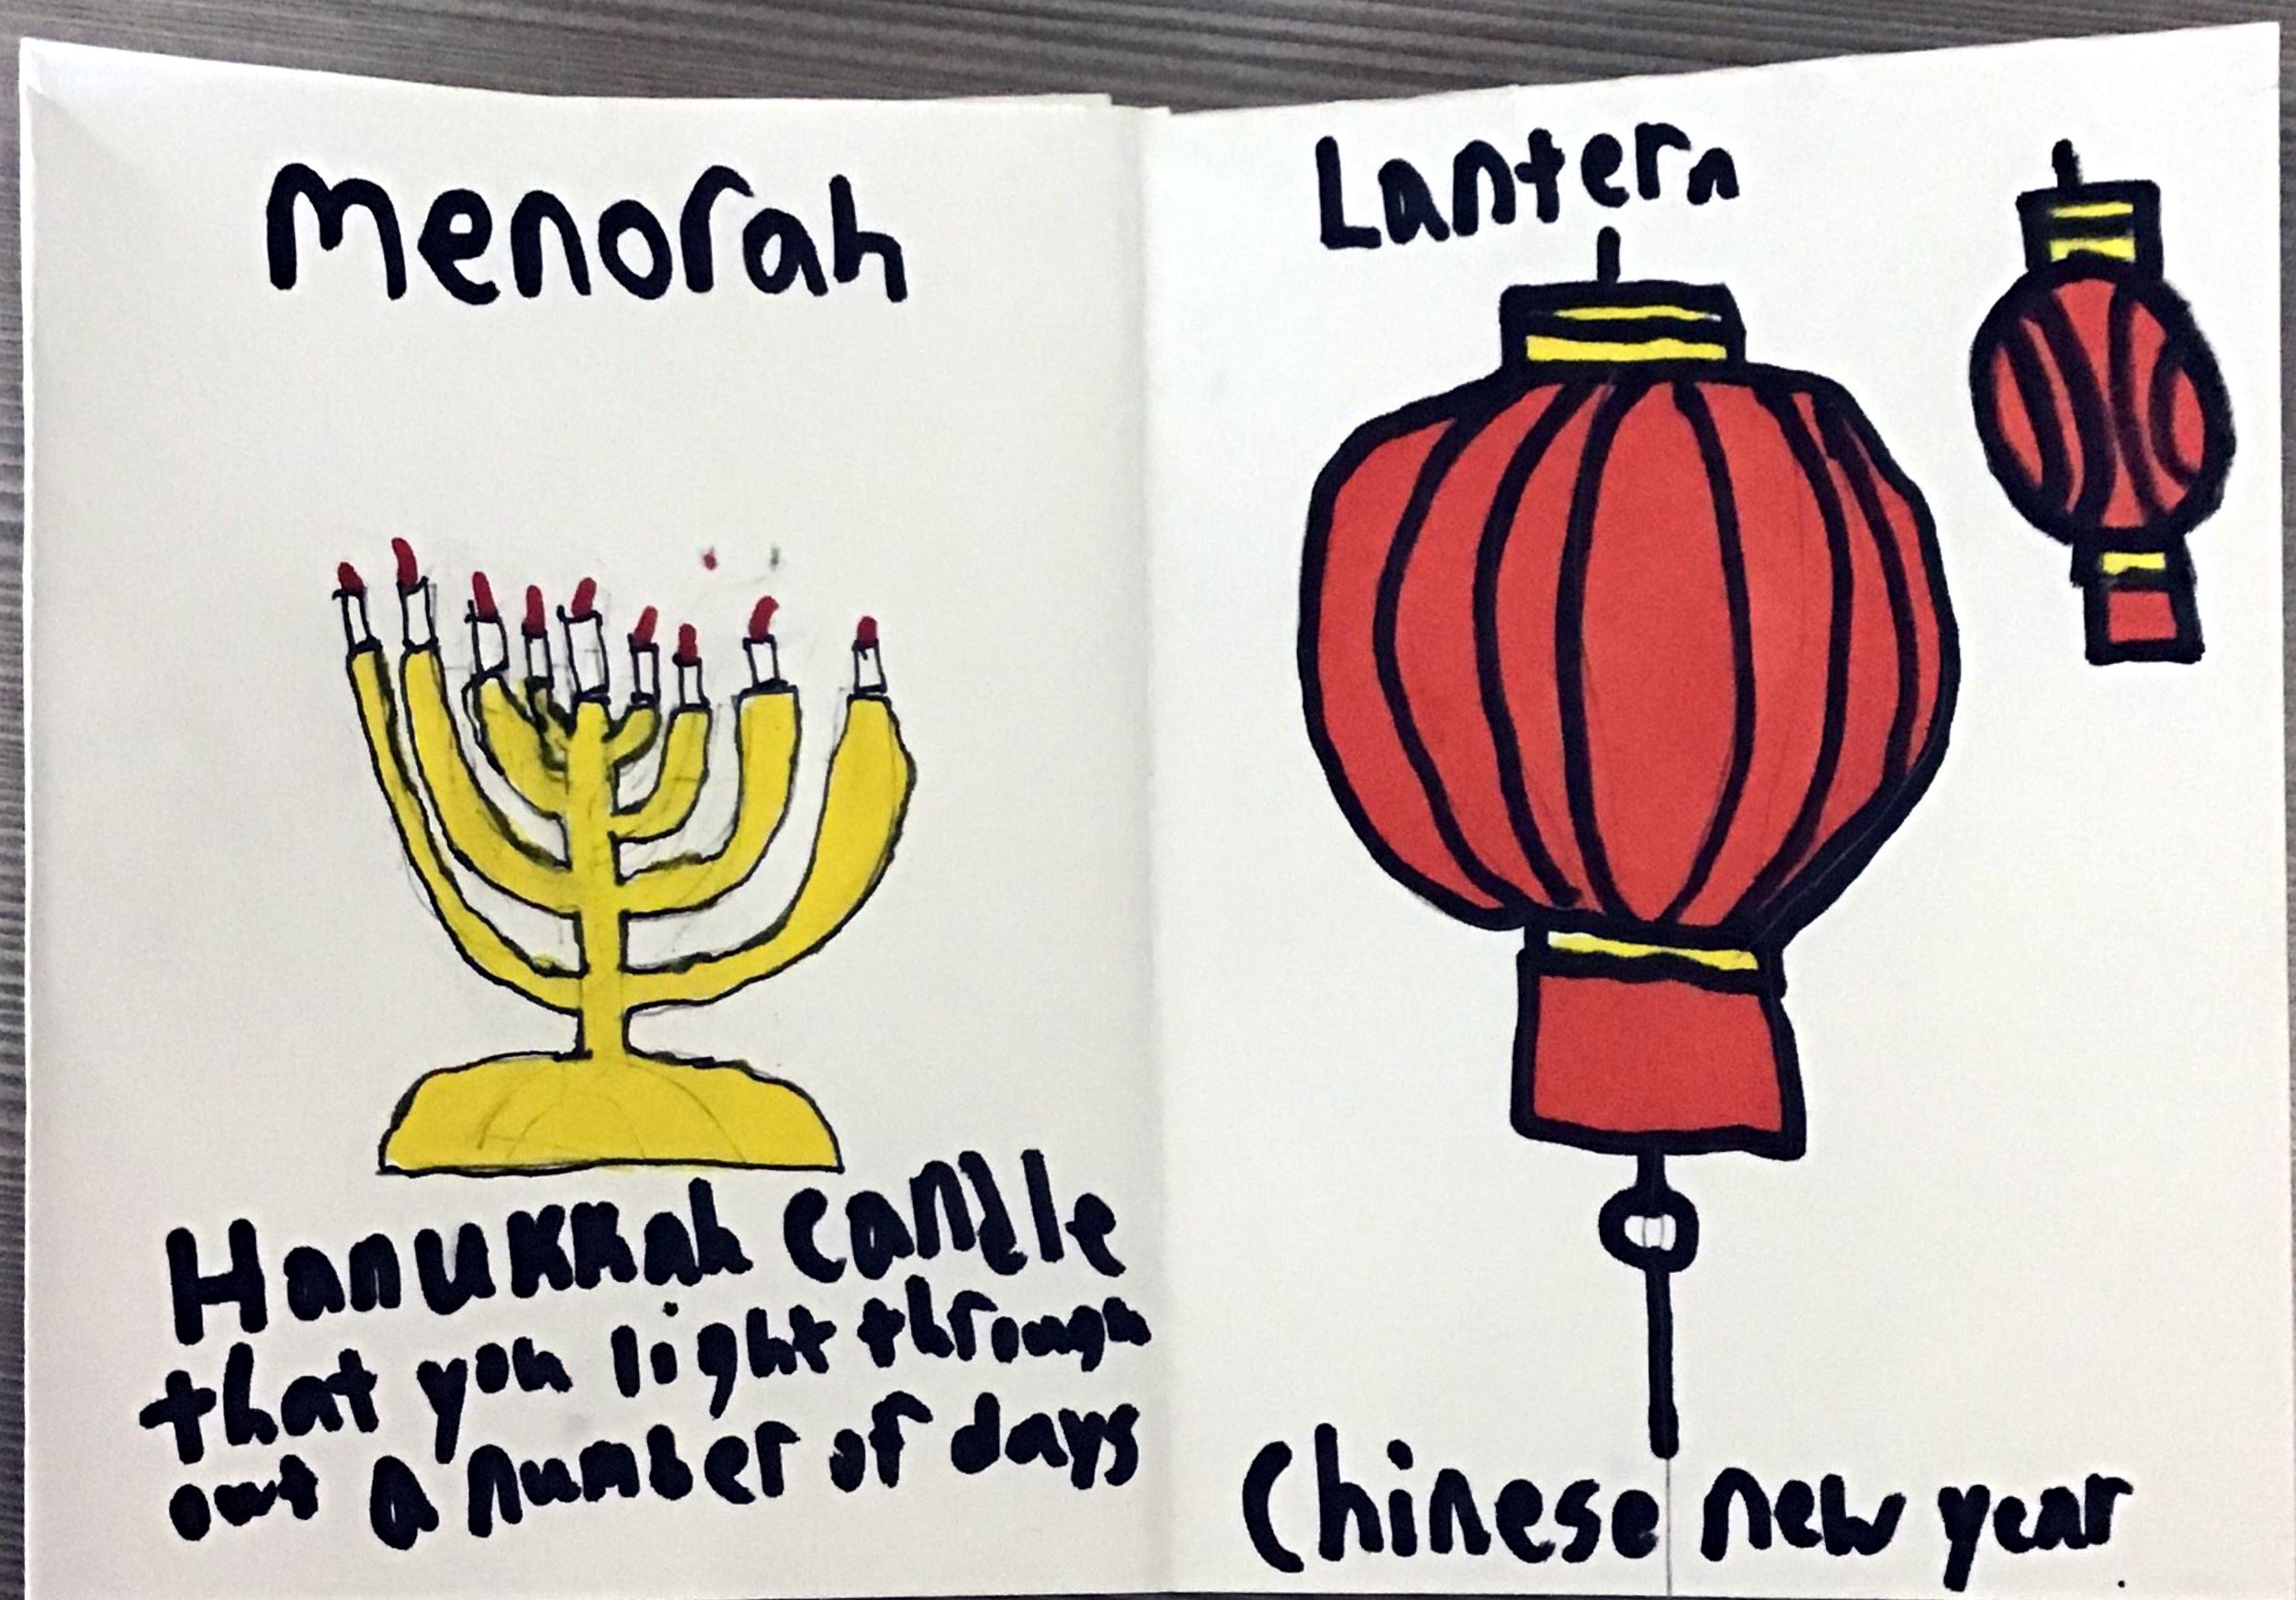 menorah
Hanukkah candle
that you light through
out a number of days
Lantern
Chinese new year